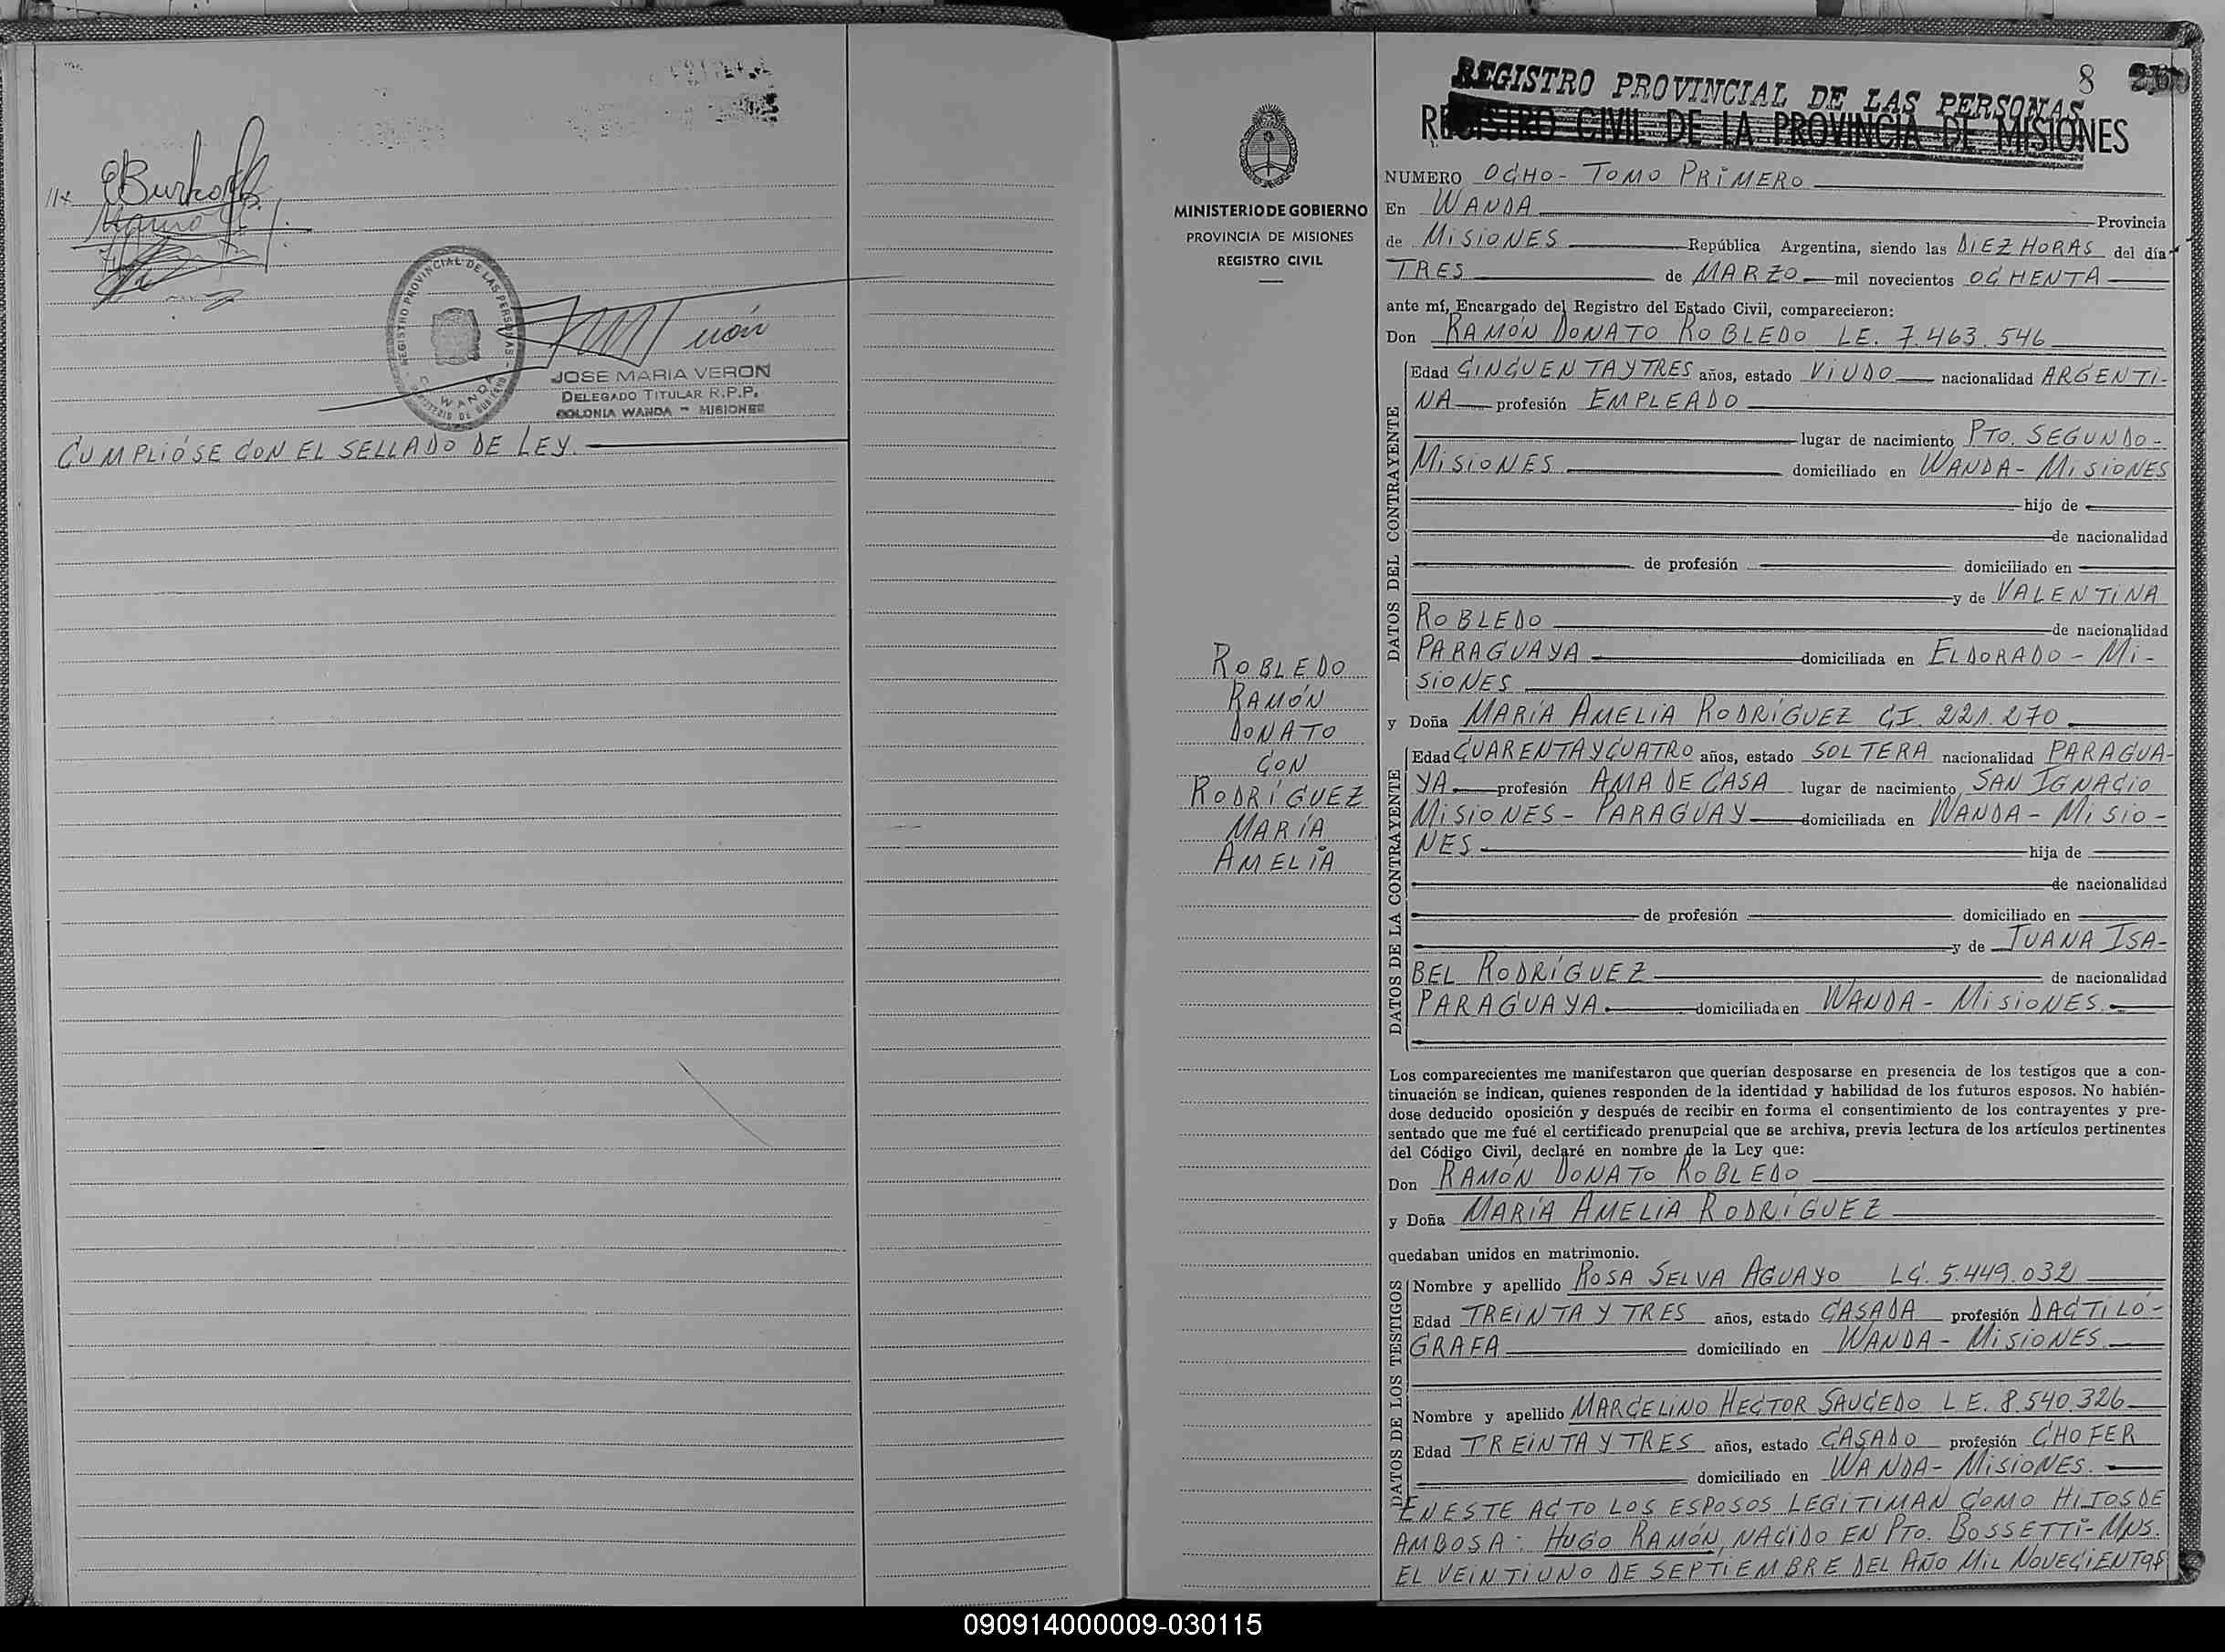 EBurkoff
REGISTRO PROVINCIAL DE LAS PERSONAS
WANDA
JOSE MARIA VERON
DELEGADO TITULAR R.P.P.
COLONIA WANDA - MISIONES
CUMPLIÓSE CON EL SELLADO DE LEY.
8
REGISTRO PROVINCIAL DE LAS PERSONAS
REGISTRO CIVIL DE LA PROVINCIA DE MISIONES
MINISTERIO DE GOBIERNO
PROVINCIA DE MISIONES
REGISTRO CIVIL
ROBLEDO
RAMÓN
DONATO
CON
RODRÍGUEZ
MARÍA
AMELIA
NUMERO OCHO - TOMO PRIMERO
En WANDA Provincia
de MISIONES República Argentina, siendo las DIEZ HORAS del día
TRES de MARZO mil novecientos OCHENTA
ante mí, Encargado del Registro del Estado Civil, comparecieron:
Don RAMÓN DONATO ROBLEDO LE. 7.463.546
DATOS DEL CONTRAYENTE
Edad CINCUENTA Y TRES años, estado VIUDO nacionalidad ARGENTI-
NA profesión EMPLEADO
lugar de nacimiento PTO. SEGUNDO-
MISIONES domiciliado en WANDA - MISIONES
hijo de
de nacionalidad
de profesión domiciliado en
y de VALENTINA
ROBLEDO de nacionalidad
PARAGUAYA domiciliada en ELDORADO - MI-
SIONES
y Doña MARÍA AMELIA RODRÍGUEZ CI. 221.270
DATOS DE LA CONTRAYENTE
Edad CUARENTA Y CUATRO años, estado SOLTERA nacionalidad PARAGUA-
YA profesión AMA DE CASA lugar de nacimiento SAN IGNACIO
MISIONES - PARAGUAY domiciliada en WANDA - MISIO-
NES hija de
de nacionalidad
de profesión domiciliado en
y de JUANA ISA-
BEL RODRÍGUEZ de nacionalidad
PARAGUAYA domiciliada en WANDA - MISIONES.
Los comparecientes me manifestaron que querían desposarse en presencia de los testigos que a con-
tinuación se indican, quienes responden de la identidad y habilidad de los futuros esposos. No habién-
dose deducido oposición y después de recibir en forma el consentimiento de los contrayentes y pre-
sentado que me fué el certificado prenupcial que se archiva, previa lectura de los artículos pertinentes
del Código Civil, declaré en nombre de la Ley que:
Don RAMÓN DONATO ROBLEDO
y Doña MARÍA AMELIA RODRÍGUEZ
quedaban unidos en matrimonio.
DATOS DE LOS TESTIGOS
Nombre y apellido ROSA SELVA AGUAYO LC. 5.449.032
Edad TREINTA Y TRES años, estado CASADA profesión DACTILÓ-
GRAFA domiciliado en WANDA - MISIONES.
Nombre y apellido MARCELINO HECTOR SAUCEDO L E. 8.540.326
Edad TREINTA Y TRES años, estado CASADO profesión CHOFER
domiciliado en WANDA - MISIONES.
EN ESTE ACTO LOS ESPOSOS LEGITIMAN COMO HIJOS DE
AMBOS A: HUGO RAMÓN, NACIDO EN PTO. BOSSETTI - MNS.
EL VEINTIUNO DE SEPTIEMBRE DEL AÑO MIL NOVECIENTOS
090914000009-030115